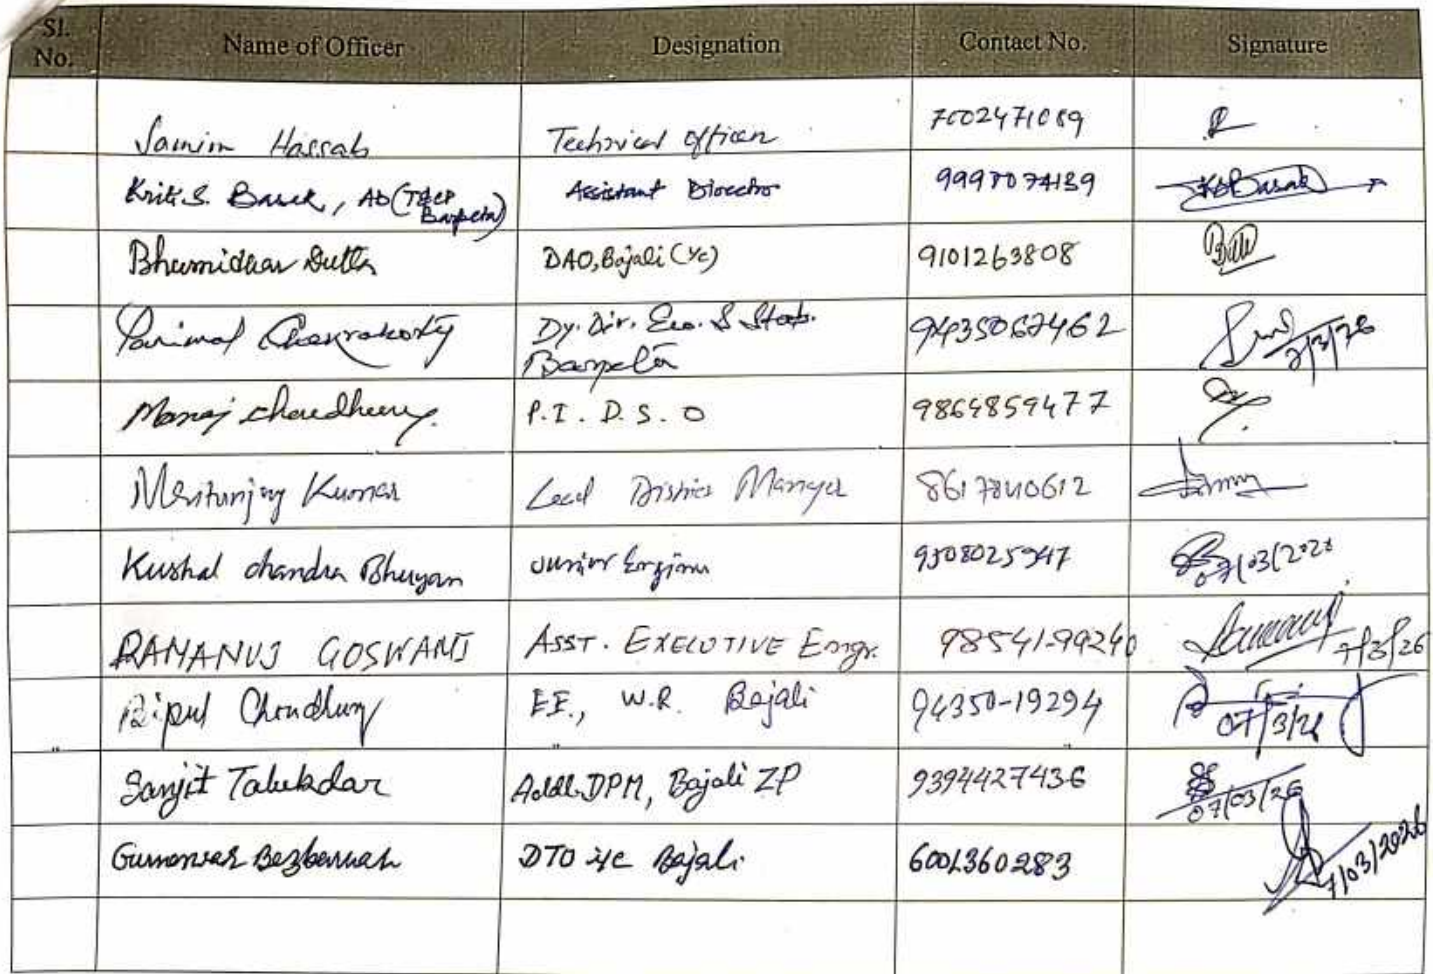 Sl. No. Name of Officer Designation Contact No. Signature
Samim Hassab Technical officer 7002471089
Kriti S. Basak, AD (T&CP Barpeta) Assistant Director 9998074139 KSBasak
Bhumidhar Dutta DAO, Bajali (i/c) 9101263808
Parimal Chakraborty Dy. Dir. Eco. & Stats. Barpeta 9435067462 7/3/26
Manoj Choudhury. P.I. D. S. O 9864859477
Mritunjay Kumar Lead District Manager 8617840612
Kushal chandra Bhuyan Junior Engineer 9508025947 07/03/2026
RAMANUJ GOSWAMI ASST. EXECUTIVE Engr. 98541-99240 7/3/26
Bipul Choudhury EE., W.R. Bajali 94350-19294 07/3/26
Sanjit Talukdar Addl. DPM, Bajali ZP 9394427436 07/03/26
Bezbaruah DTO i/c Bajali 6001360283 7/03/2026